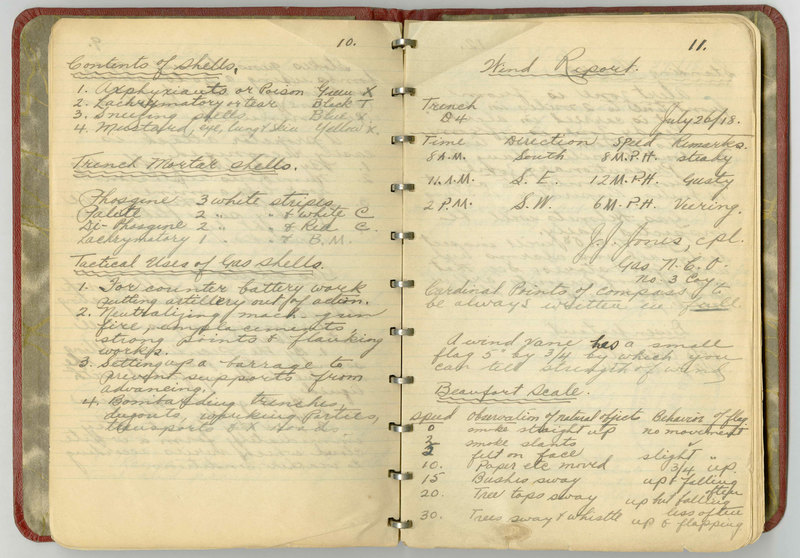 10.
Contents of Shells.
1. Asphyxiants or Poison Green X
2. Lachrymatory or tear Black T
3. Sneezing shells Blue X
4. Mustard, eye, lung & skin Yellow X.
Trench Mortar Shells.
Phosgine 3 white stripes
Palite 2 " " & white C
Di-Phosgine 2 " " & Red C.
Lachrymatory 1 " & B.M.
Tactical Uses of Gas Shells.
1. For counter battery work
putting artillery out of action.
2. Neutralizing mach. gun
fire, emplacements,
strong points & flanking
works.
3. Setting up a barrage to
prevent supports from
advancing.
4. Bombarding trenches,
dugouts, working Parties,
transports & X roads.
11.
Wind Report.
Trench
D4 July 26/18.
Time Direction Speed Remarks.
8 A.M. South 8 M.P.H. steady
11 A.M. S. E. 12 M.P.H. Gusty
2 P.M. S.W. 6 M.P.H. Veering.
J.J. Jones, cpl.
Gas N.C.O.
No. 3 Coy
Cardinal Points of compass to
be always written in full
A wind vane has a small
flag 5" by 3/4 by which you
can tell strength of wind
Beaufort Scale.
Speed Observation of natural objects Behavior of flag.
0 smoke straight up no movement
2 smoke slants "
5 felt on face slight "
10. Paper etc moved 3/4 up.
15 Bushes sway up & falling
often
20. Tree tops sway up but falling
less often
30. Trees sway & whistle up & flapping